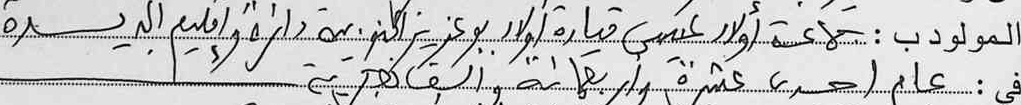 المولود ب: جماعة أولاد عيسى قيادة أولاد بوعزيز الجنوبية دائرة وإقليم الجديدة
في: عام احدى عشرة وأربعمائة وألف هجرية